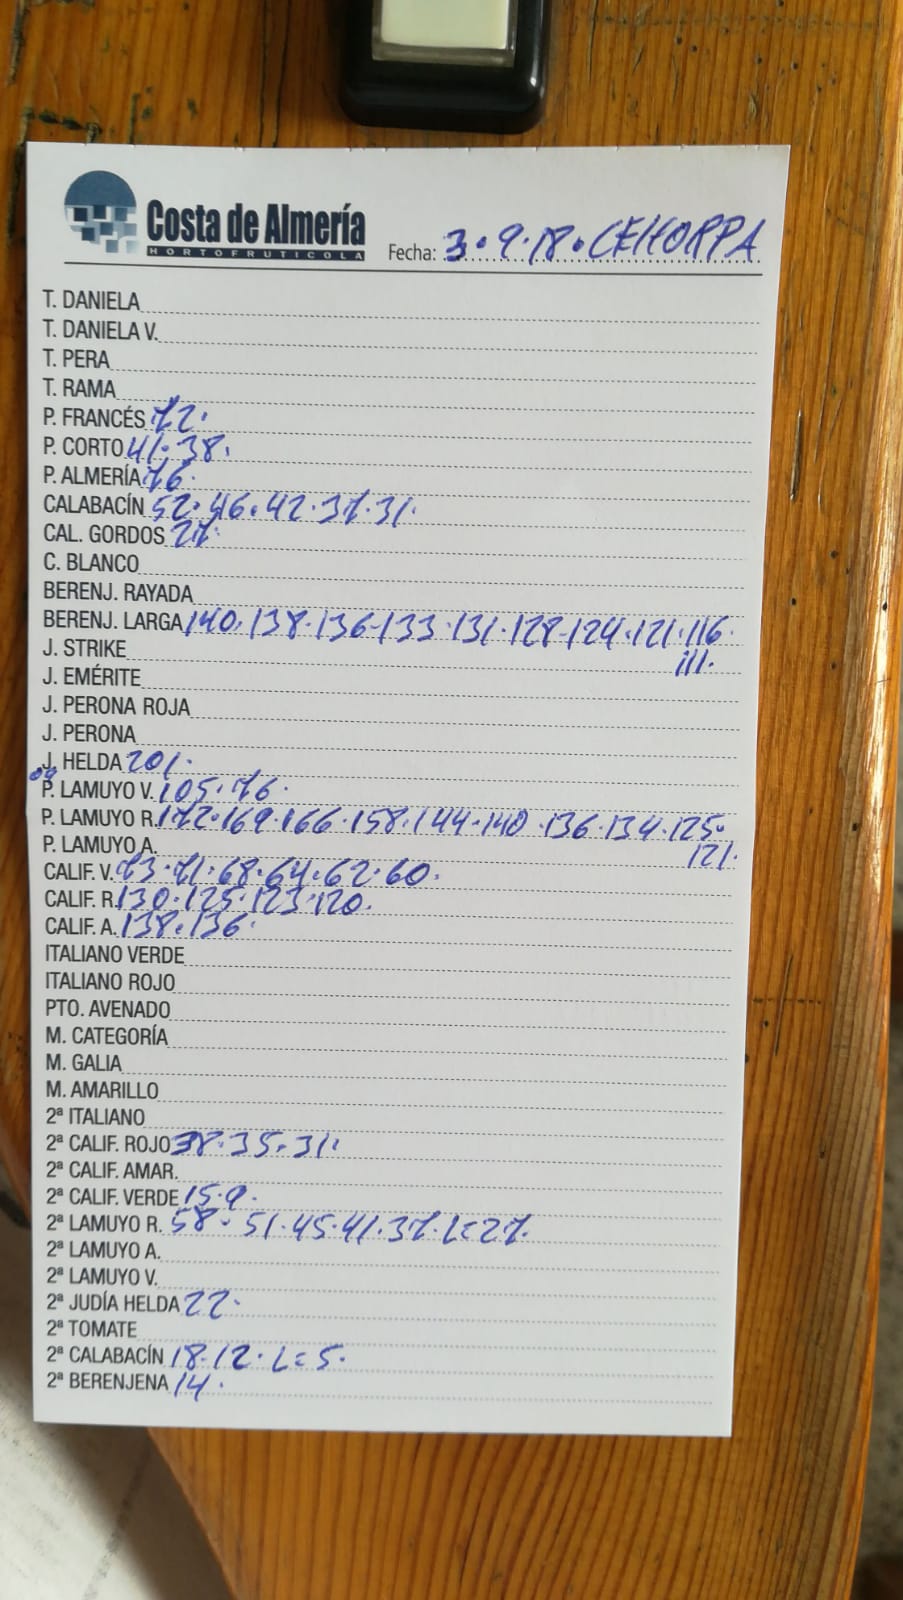 Costa de Almería
HORTOFRUTICOLA
Fecha: 3.9.18. CEHORPA
T. DANIELA
T. DANIELA V.
T. PERA
T. RAMA
P. FRANCÉS 72.
P. CORTO 41. 38.
P. ALMERÍA 76.
CALABACÍN 52. 46. 42. 37. 31.
CAL. GORDOS 27.
C. BLANCO
BERENJ. RAYADA
BERENJ. LARGA 140. 138. 136-133. 131. 128-124. 121. 116.
111.
J. STRIKE
J. EMÉRITE
J. PERONA ROJA
J. PERONA
J. HELDA 201.
P. LAMUYO V. 105. 76.
P. LAMUYO R. 172. 169. 166. 158. 144. 140. 136. 134. 125.
121.
P. LAMUYO A.
CALIF. V. 73. 71. 68. 64. 62. 60.
CALIF. R. 130. 125. 123. 120.
CALIF. A. 138. 136.
ITALIANO VERDE
ITALIANO ROJO
PTO. AVENADO
M. CATEGORÍA
M. GALIA
M. AMARILLO
2ª ITALIANO
2ª CALIF. ROJO 38. 35. 31.
2ª CALIF. AMAR.
2ª CALIF. VERDE 15. 9.
2ª LAMUYO R. 58. 51. 45. 41. 37. L=27.
2ª LAMUYO A.
2ª LAMUYO V.
2ª JUDÍA HELDA 22.
2ª TOMATE
2ª CALABACÍN 18. 12. L=5.
2ª BERENJENA 14.